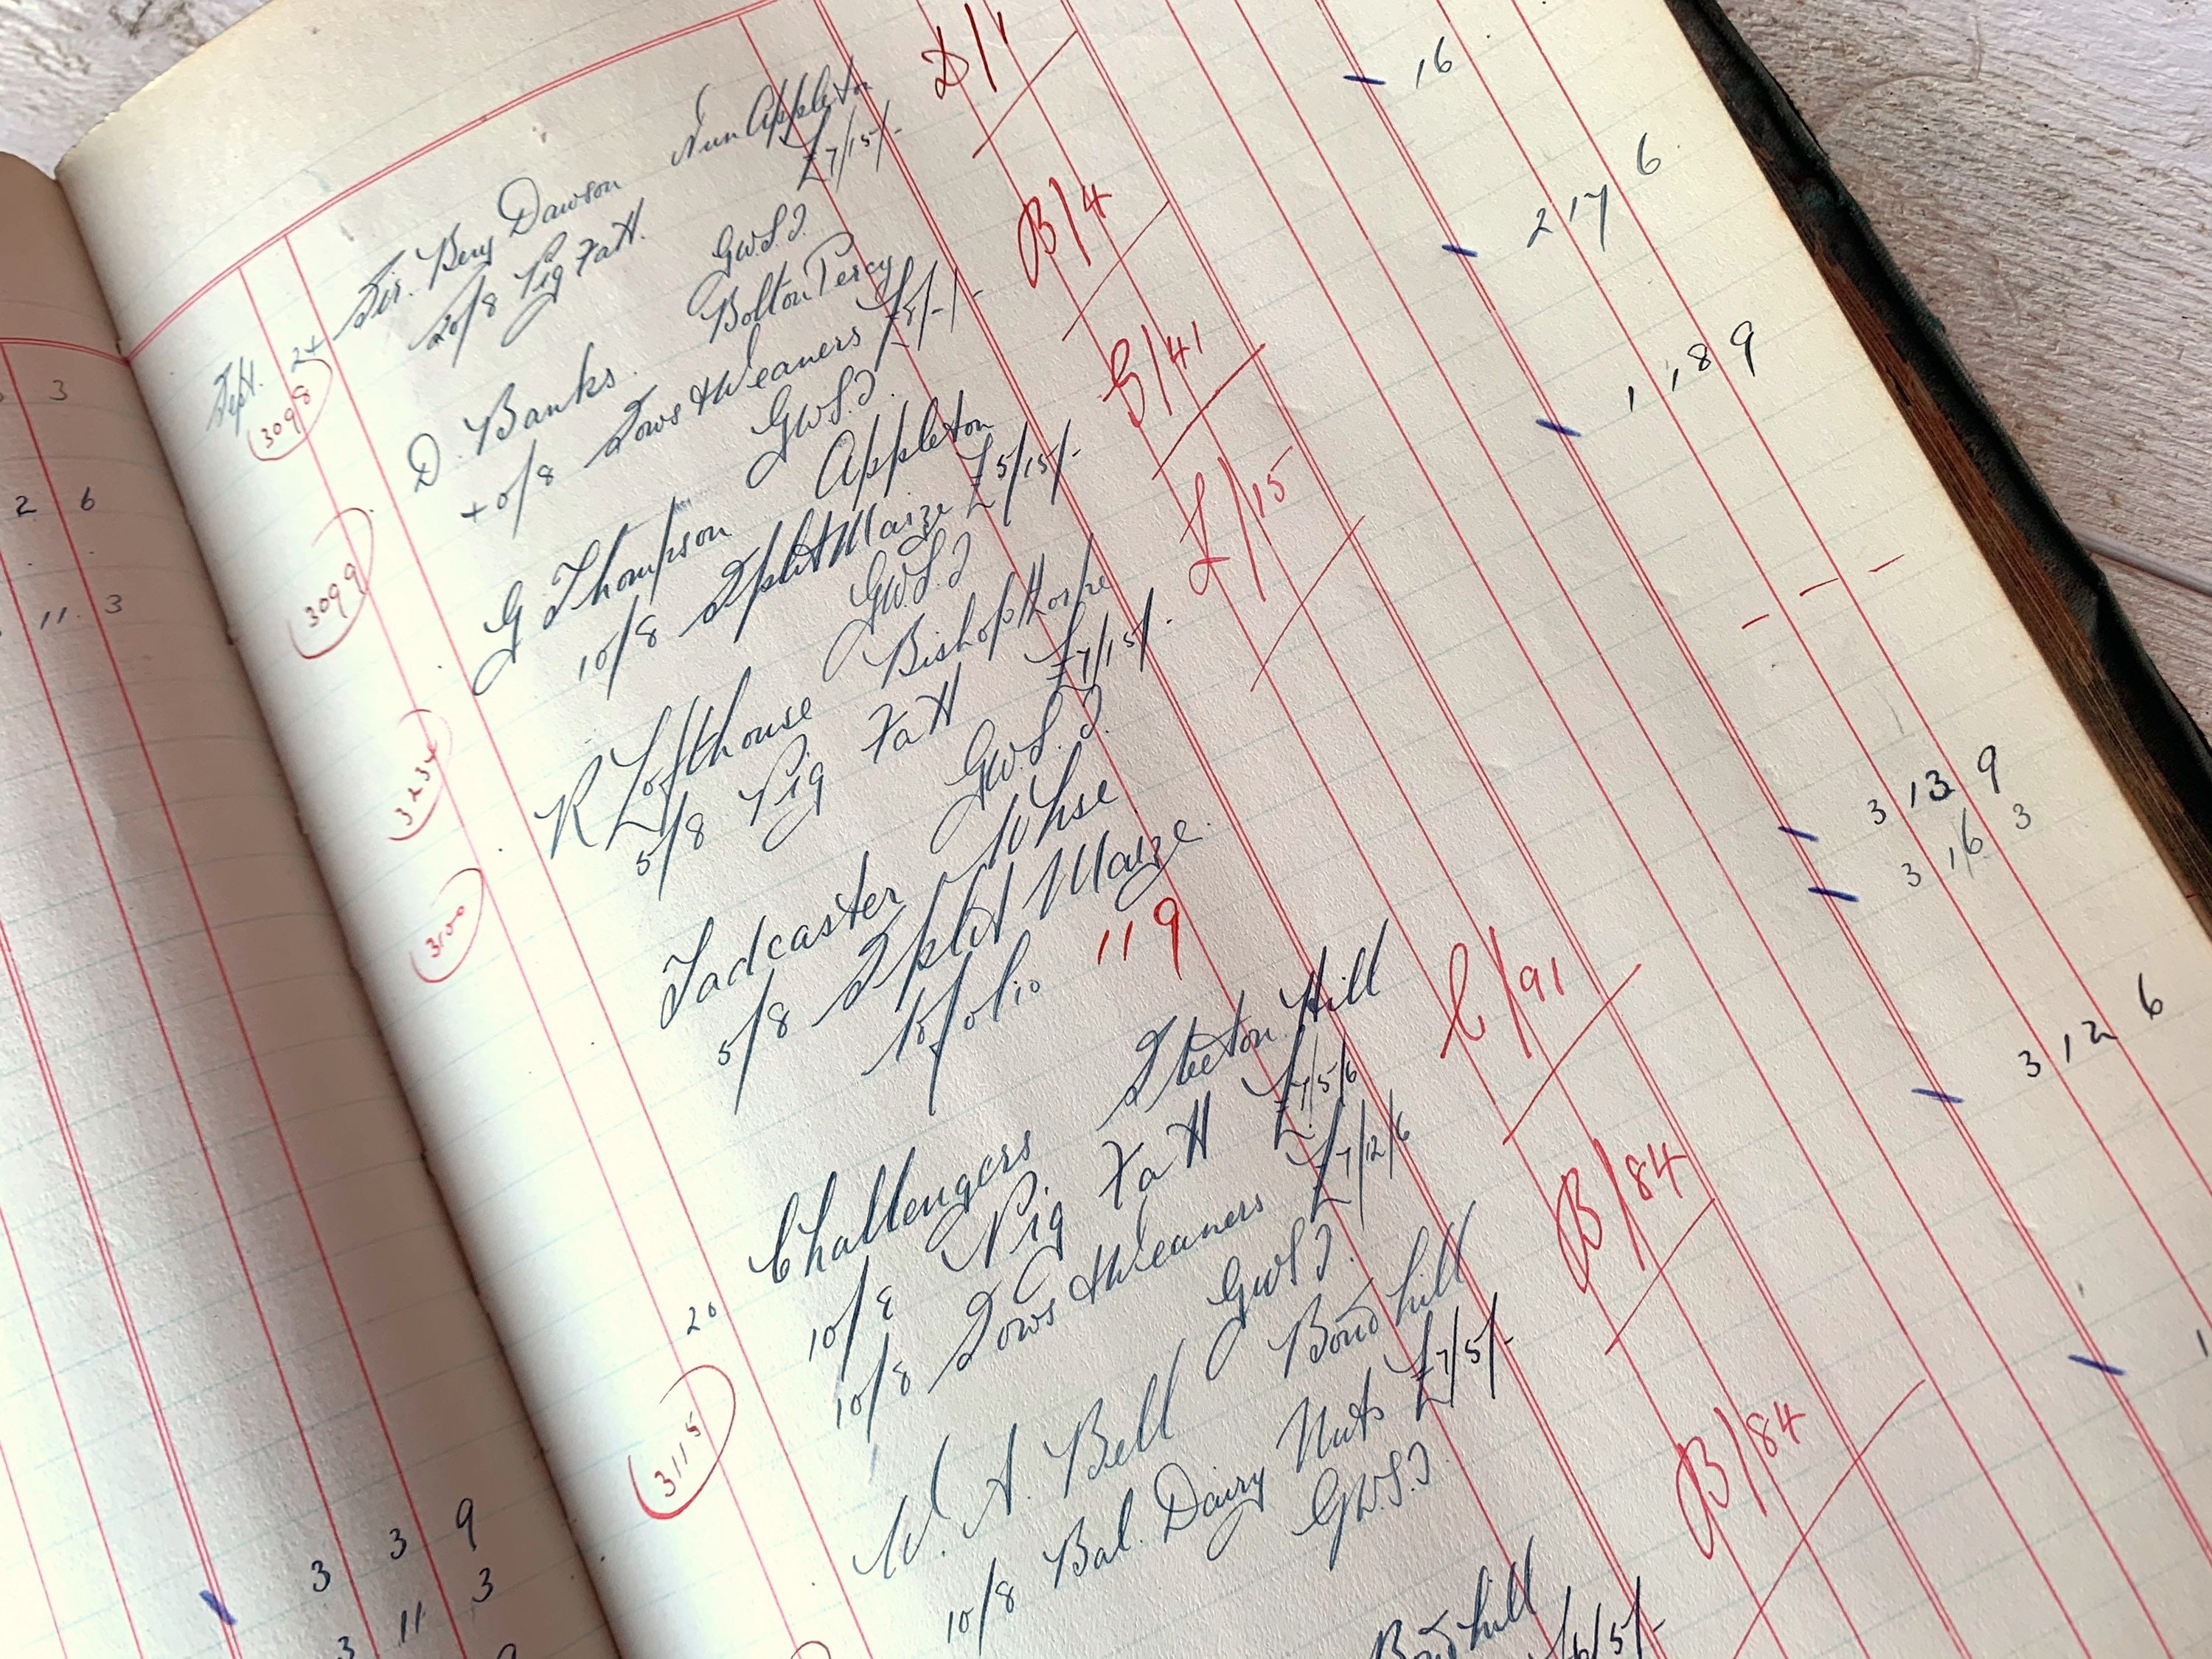 3
2 6
11 3
3 3 9
3 11 3
3 9
D/1
Sept. 24 Sir. Benj Dawson Nun Appleton
3098 20/8 Pig Fatt. £7/15/-
16
G.W.S.I.
B/4
D. Banks. Bolton Percy
3099 40/8 Sows & Weaners £7/-/-
2 17 6
G.W.S.I.
G/41
G Thompson Appleton
3234 10/8 Split Maize £5/15/-
1 18 9
G.W.S.I
L/15
R Lofthouse Bishopthorpe
3100 5/8 Pig Fatt £7/15/-
G.W.S.I.
Tadcaster Whse
5/8 Split Maize.
- - -
folio 119
C/91
Challengers Steeton Hill
10/8 Pig Fatt £7/5/6
3 13 9
20 10/8 Sows & Weaners £7/12/6
3 16 3
3115 G.W.S.I.
B/84
W. A. Bell Bond hill
10/8 Bal. Dairy Nuts £7/5/-
3 12 6
G.W.S.I.
B/84
Bond hill
£6/5/-
1